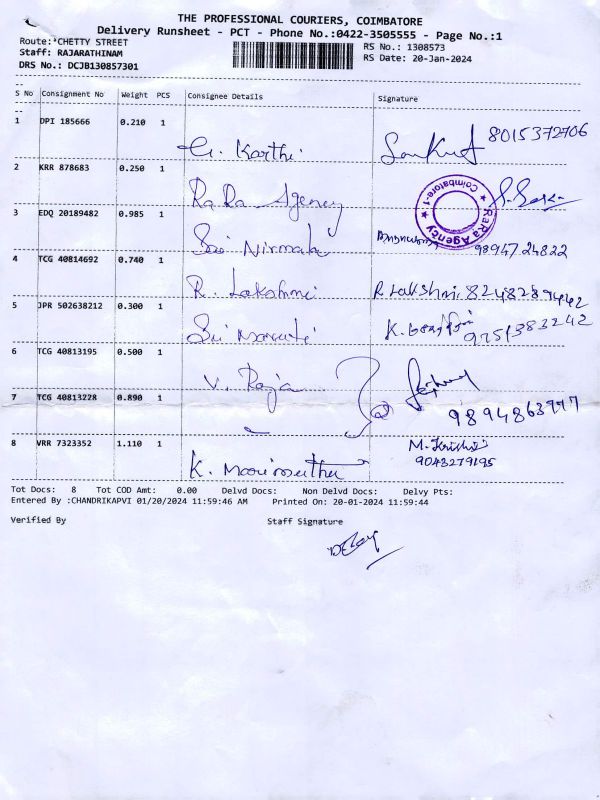 THE PROFESSIONAL COURIERS, COIMBATORE
Delivery Runsheet - PCT - Phone No.:0422-3505555 - Page No.:1
Route: CHETTY STREET
RS No.: 1308573
Staff: RAJARATHINAM
RS Date: 20-Jan-2024
DRS No.: DCJB130857301
S No Consignment No Weight PCS Consignee Details Signature
1 DPI 185666 0.210 1
G. Karthi 8015372706
2 KRR 878683 0.250 1
Ra Ra Agency
RaRa Agency ★ Coimbatore-1 ★
3 EDQ 20189482 0.985 1
Sri Nirmala 9894724822
4 TCG 40814692 0.740 1
R. Lakshmi R. Lakshmi 8248289442
5 JPR 502638212 0.300 1
Sri Maruti
6 TCG 40813195 0.500 1
V. Raja
7 TCG 40813228 0.890 1
8 VRR 7323352 1.110 1
K. Marimuthu 9043279195
Tot Docs: 8 Tot COD Amt: 0.00 Delvd Docs: Non Delvd Docs: Delvy Pts:
Entered By :CHANDRIKAPVI 01/20/2024 11:59:46 AM Printed On: 20-01-2024 11:59:44
Verified By Staff Signature